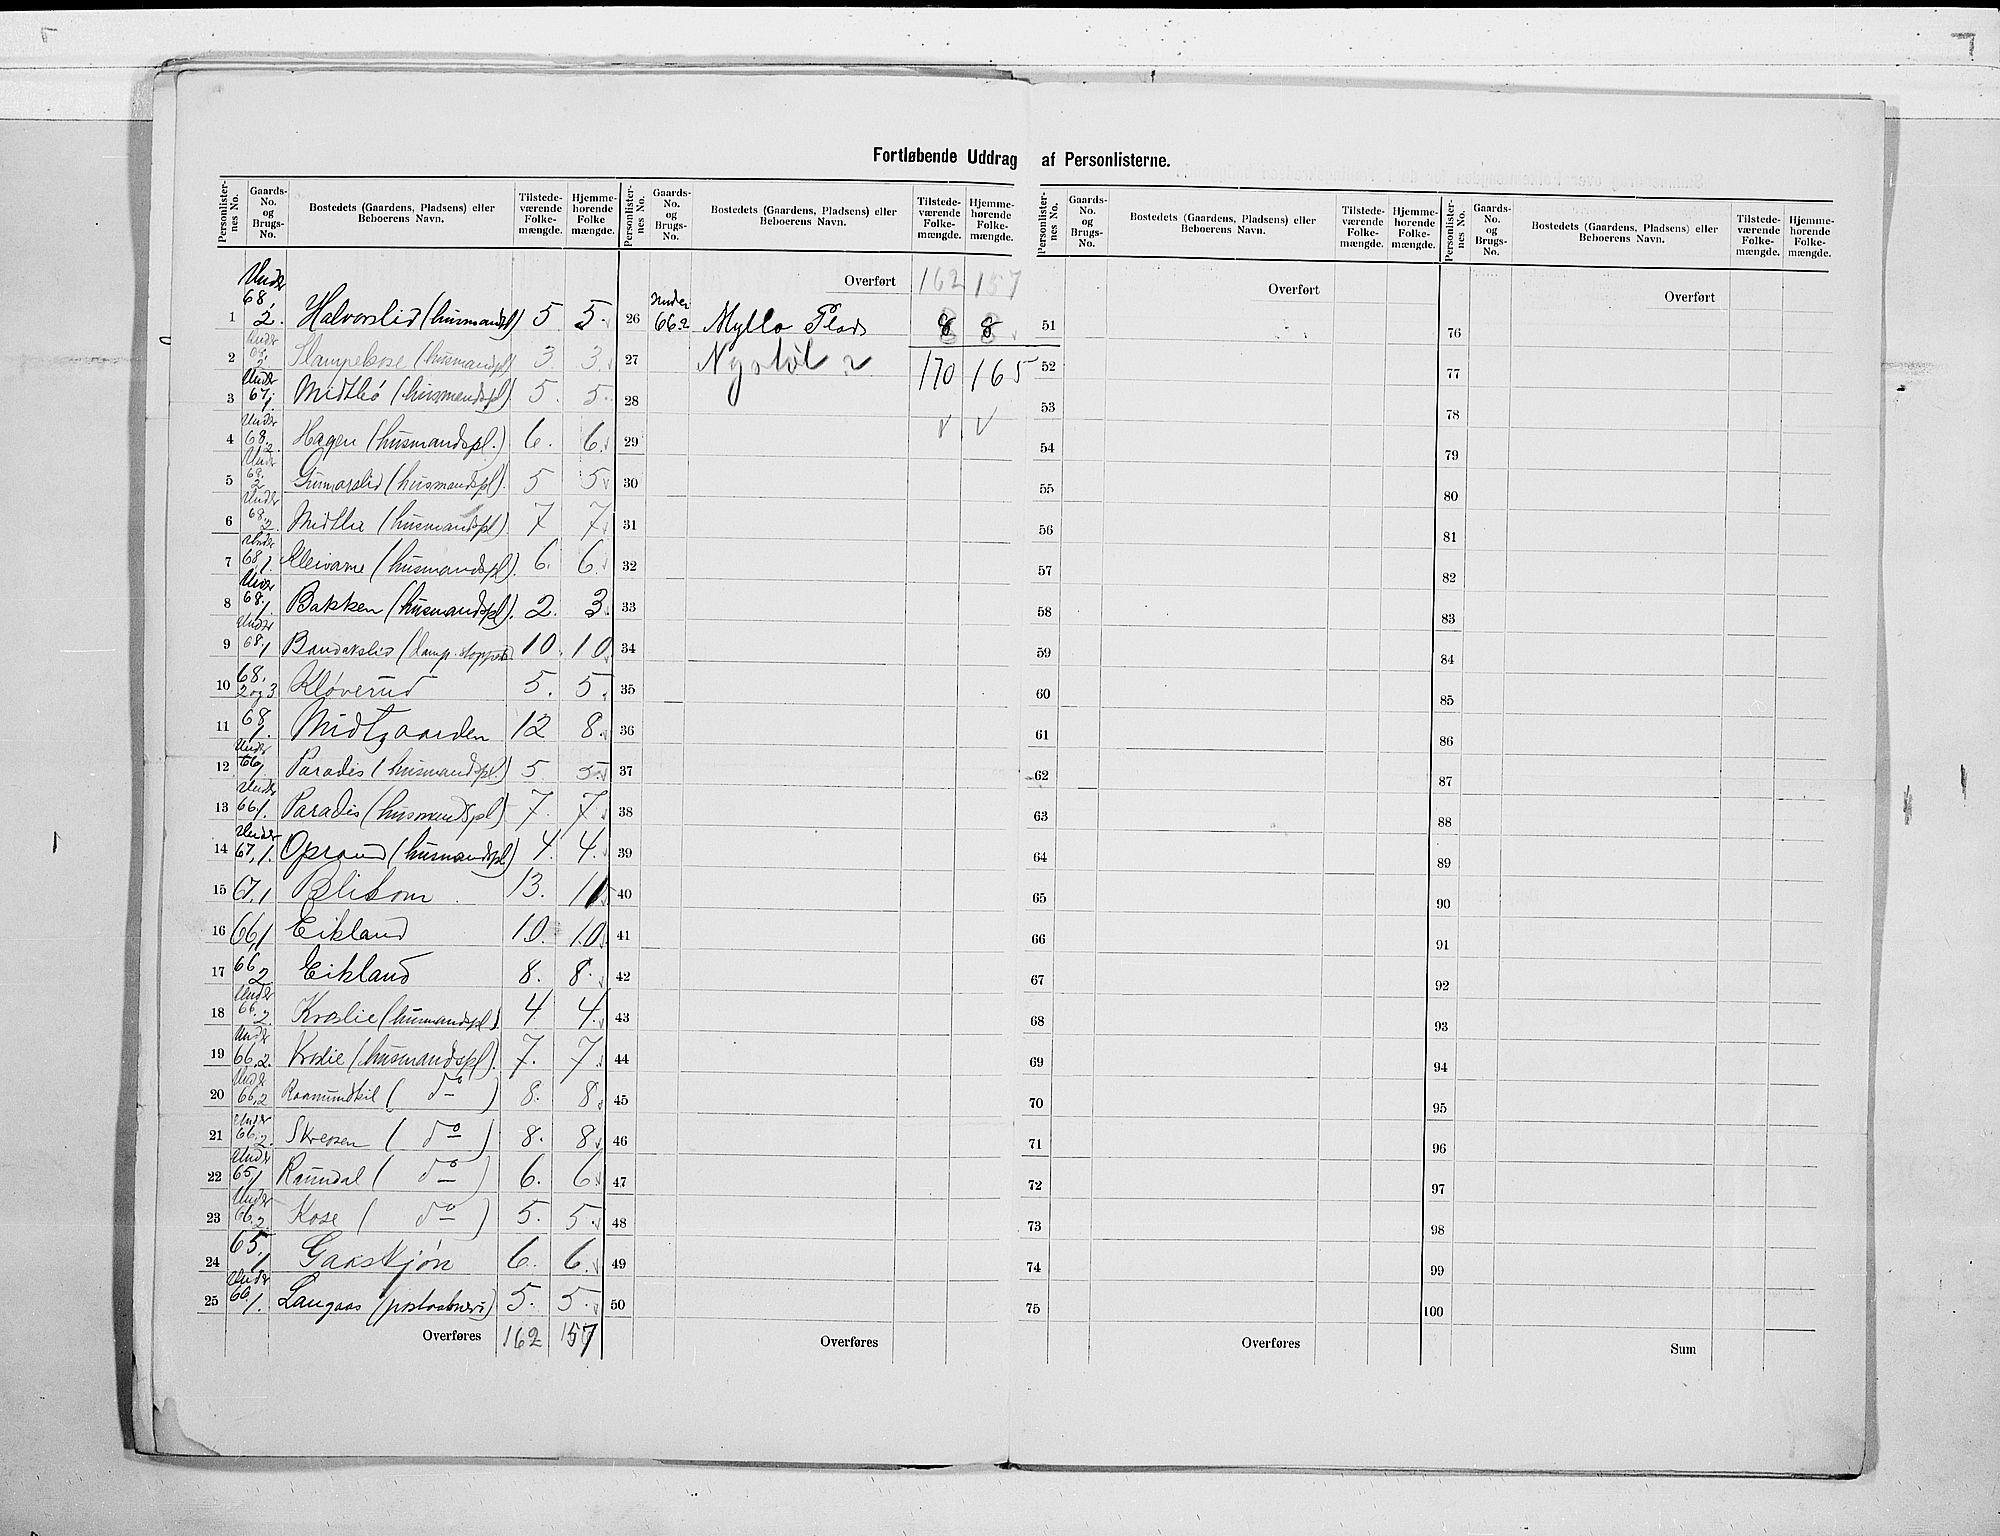 Fortløbende Uddrag af Personlisterne.
Personlister-nes No. Gaards-No. og Brugs-No. Bostedets (Gaardens, Pladsens) eller Beboerens Navn. Tilstede-værende Folke-mængde. Hjemme-hørende Folke mængde.
Under
1 68, 2. Halvorslid (husmandspl) 5 5.
2 Under 68, Stampekose (husmandspl) 3. 3.
3 Under 67, 1. Midtbö (husmandspl). 5. 5.
4 Under 68, 2. Hagen (husmandspl.) 6. 6.
5 Under 68, 2 Gunnarslid (husmandspl). 5 5
6 Under 68, 2. Midtlie (husmandspl). 7 7
7 Under 68, 1. Kleivane (husmandspl). 6. 6.
8 Under 68, 1. Bakken (husmandspl). 2. 3.
9 Under 68, 1 Baudakslid 10. 10.
10 68, 2 og 3 Kløverud 5. 5.
11 68 1. Midtgaarden 12 8.
12 Under 66, 1 Paradis (husmandspl.) 5. 5.
13 Under 66, 1. Paradis (husmandspl) 7. 7.
14 Under 67, 1. Oprand (husmandspl) 4. 4.
15 67, 1 Blikom 13. 11
16 66, 1 Eikland 10. 10.
17 66 2 Eikland 8. 8.
18 Under 66, 2. Kroslie (husmandspl). 4 4.
19 Under 66, 2. Kroslie (husmandspl). 7. 7.
20 Under 66, 2 Raamundkil ( do ) 8. 8
21 Under 66, 2. Skreosen ( do ) 8. 8
22 Under 65, 1 Raundal ( do ) 6. 6
23 Under 66, 2. Kose ( do ) 5. 5.
24 65, 1 Gaaskjön 6. 6.
25 Under 66, 1. Langaas (postaabneri) 5. 5.
Overføres 162 157
Personlister-nes No. Gaards-No. og Brugs-No. Bostedets (Gaardens, Pladsens) eller Beboerens Navn. Tilstede-værende Folke-mængde. Hjemme-hørende Folke-mængde.
Overført 162 157
26 under 66.2 Myllo Plads 8 8
27 Nystöl 2 170 165
28
29
30
31
32
33
34
35
36
37
38
39
40
41
42
43
44
45
46
47
48
49
50
Overføres
Personlister-nes No. Gaards-No. og Brugs-No. Bostedets (Gaardens, Pladsens) eller Beboerens Navn. Tilstede-værende Folke-mængde. Hjemme-hørende Folke-mængde.
Overført
51
52
53
54
55
56
57
58
59
60
61
62
63
64
65
66
67
68
69
70
71
72
73
74
75
Overføres
Personlister-nes No. Gaards-No. og Brugs-No. Bostedets (Gaardens, Pladsens) eller Beboerens Navn. Tilstede-værende Folke-mængde. Hjemme-hørende Folke-mængde.
Overført
76
77
78
79
80
81
82
83
84
85
86
87
88
89
90
91
92
93
94
95
96
97
98
99
100
Sum